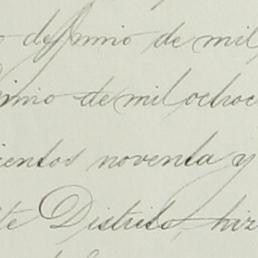 de Junio de mil
unio de mil ochoc
cientos noventa y
te Distrito, hiz